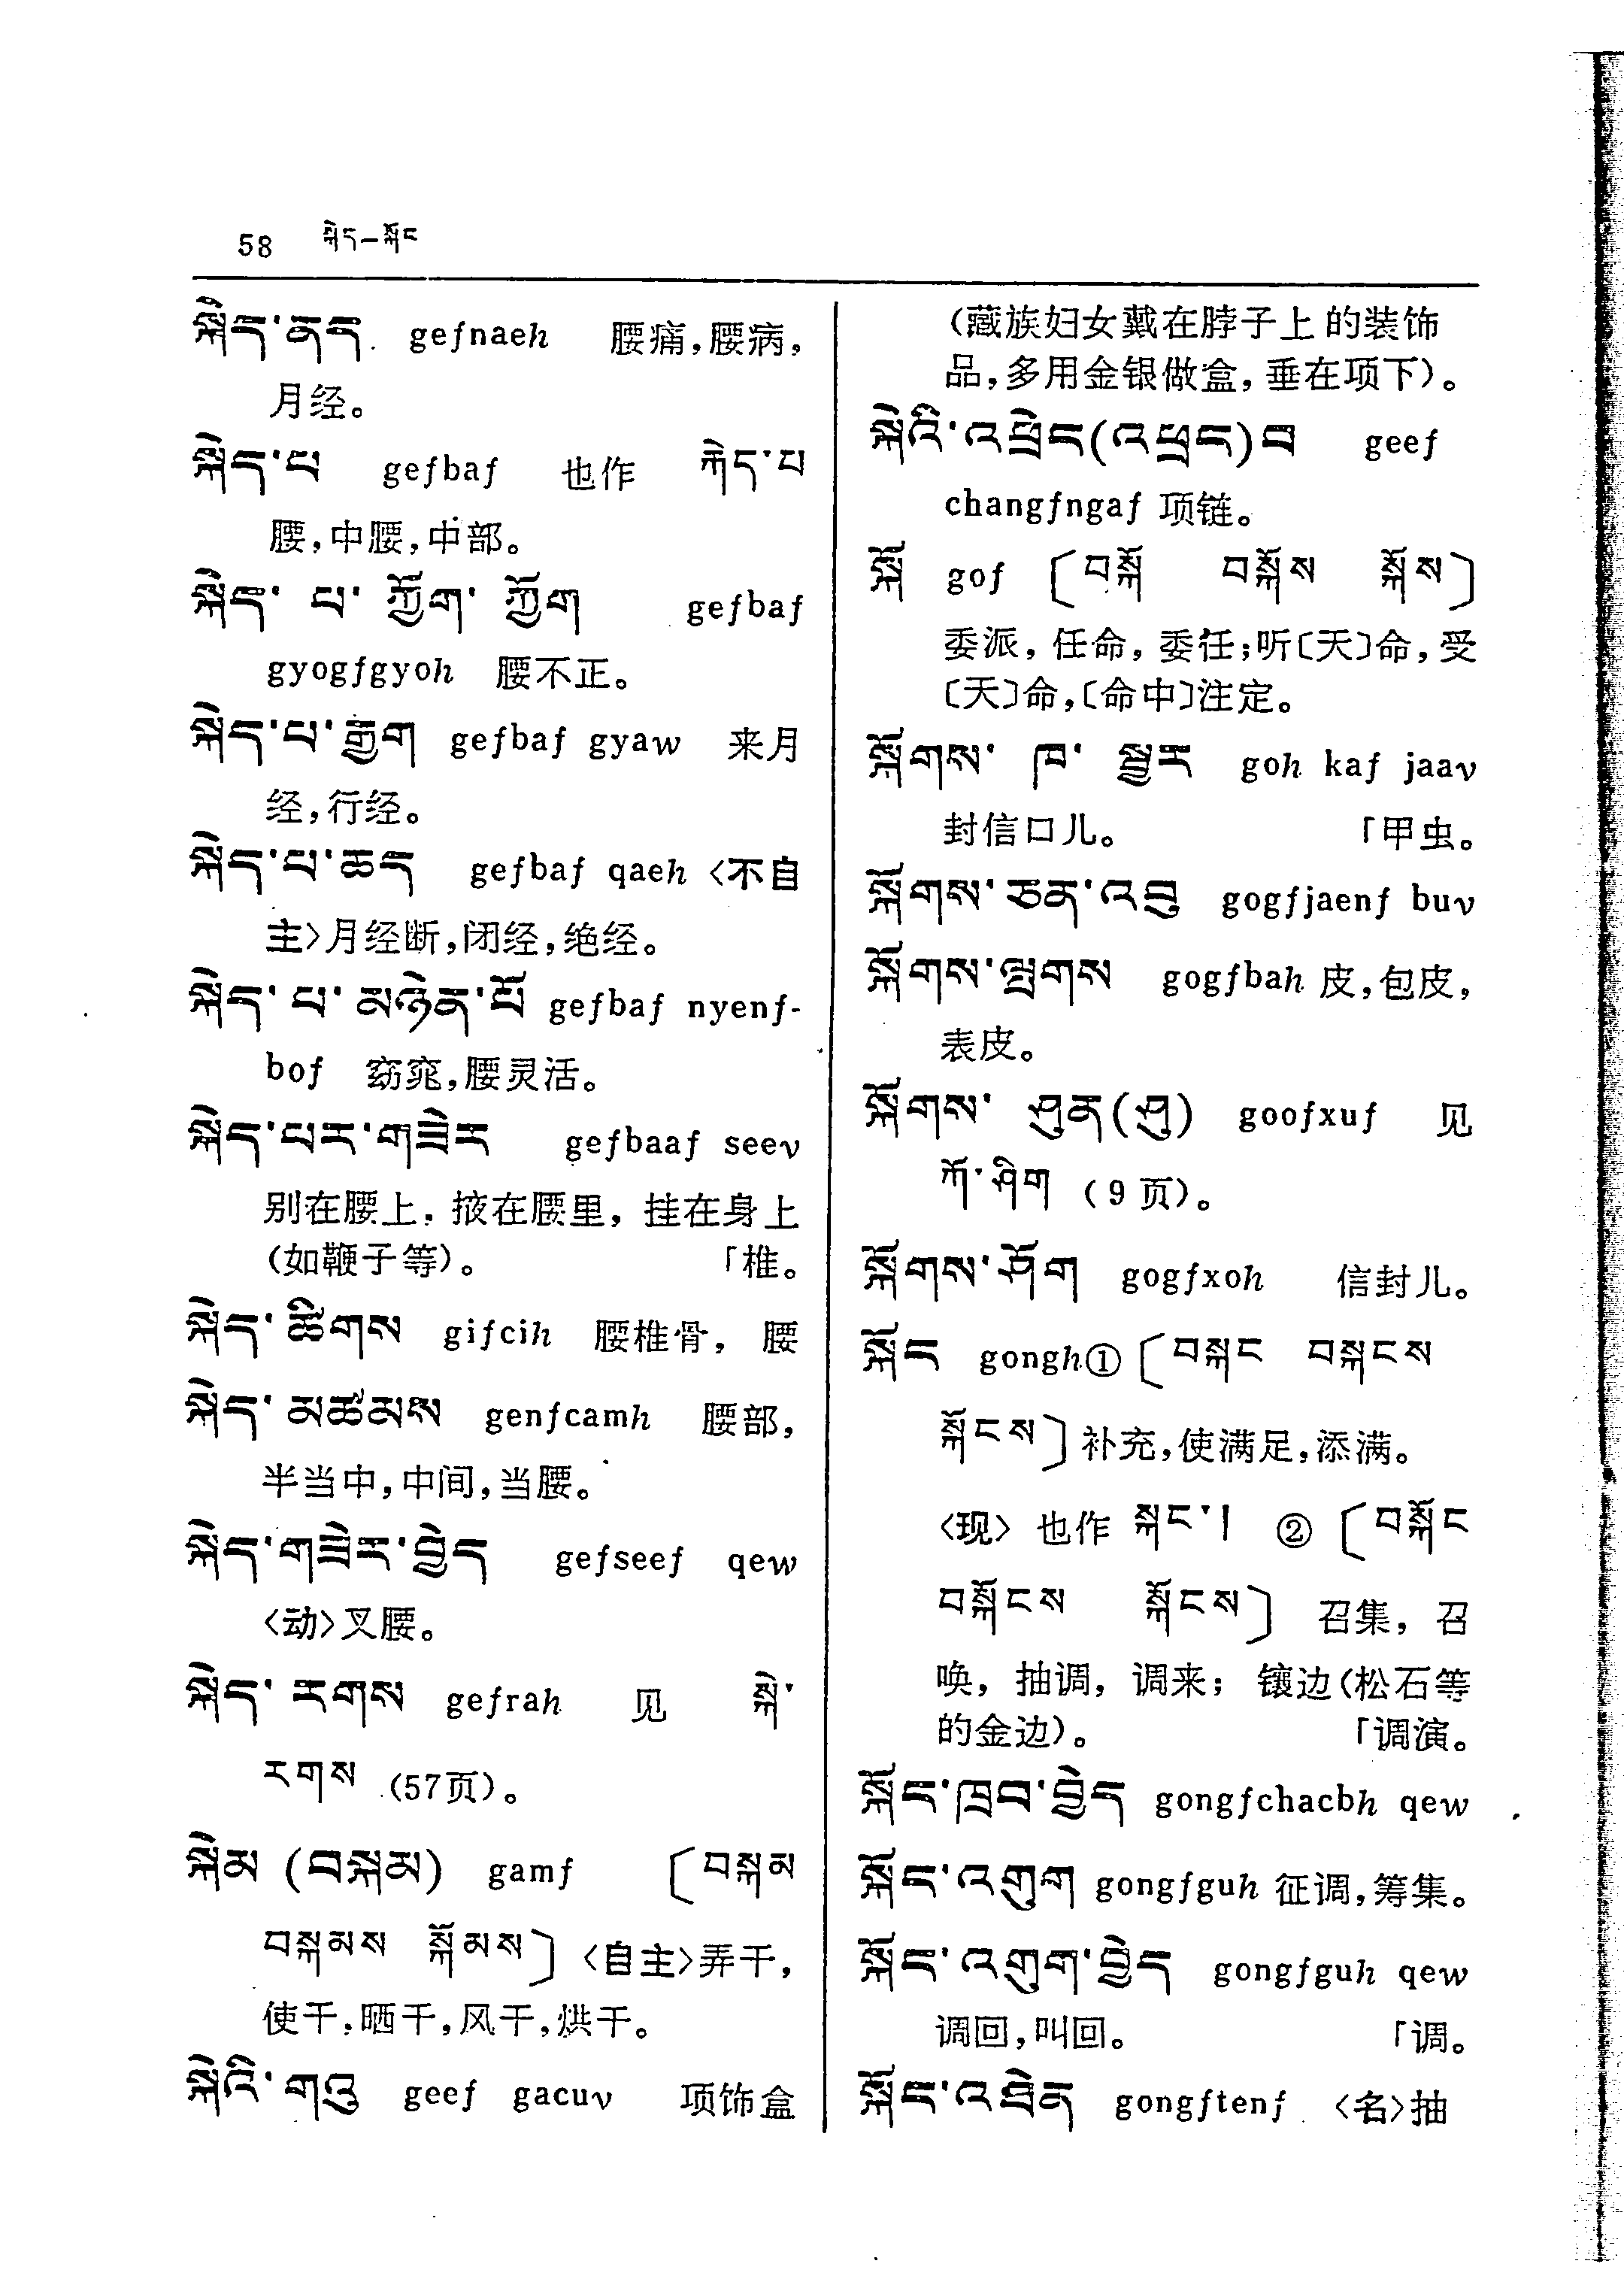 58 སྐེད—སྐོང
སྐེད་ནད gefnaeh 腰痛，腰病，
月经。
སྐེད་པ gefbaf 也作 རྐེད་པ
腰，中腰，中部。
སྐེད་པ་ཀྱོག་ཀྱོག gefbaf
gyogfgyoh 腰不正。
སྐེད་པ་རྒྱག gefbaf gyaw 来月
经，行经。
སྐེད་པ་ཆད gefbaf qaeh 〈不自
主〉月经断，闭经，绝经。
སྐེད་པ་མཉེན་པོ gefbaf nyenf-
bof 窈窕，腰灵活。
སྐེད་པར་གཟེར gefbaaf seev
别在腰上，掖在腰里，挂在身上
(如鞭子等)。 「椎。
སྐེད་ཚིགས gifcih 腰椎骨，腰
སྐེད་མཚམས genfcamh 腰部，
半当中，中间，当腰。
སྐེད་གཟེར་བྱེད gefseef qew
〈动〉叉腰。
སྐེད་རགས gefrah 见 སྐེ་
རགས (57页)。
སྐེམ (བསྐམ) gamf 〔བསྐམ
བསྐམས སྐོམས〕〈自主〉弄干，
使干，晒干，风干，烘干。
སྐེའི་གའུ geef gacuv 项饰盒
(藏族妇女戴在脖子上的装饰
品，多用金银做盒，垂在项下)。
སྐེའི་འཕྲེང(འཕྲང)བ geef
changfngaf 项链。
སྐོ gof 〔བསྐོ བསྐོས སྐོས〕
委派，任命，委任；听〔天〕命，受
〔天〕命，〔命中〕注定。
སྐོགས་ཁ་སྦྱར goh kaf jaav
封信口儿。 「甲虫。
སྐོགས་ཅན་འབུ gogfjaenf buv
སྐོགས་ལྤགས gogfbah 皮，包皮，
表皮。
སྐོགས་ཤུན(ཤུ) goofxuf 见
ཀོ་ཤིག (9页)。
སྐོགས་ཤོག gogfxoh 信封儿。
སྐོང gongh①〔བསྐང བསྐངས
སྐོངས〕补充，使满足，添满。
〈现〉也作 སྐང་། ②〔བསྐོང
བསྐོངས སྐོངས〕 召集，召
唤，抽调，调来；镶边(松石等
的金边)。 「调演。
སྐོང་ཁྲབ་བྱེད gongfchacbh qew
སྐོང་འགུག gongfguh 征调，筹集。
སྐོང་འགུག་བྱེད gongfguh qew
调回，叫回。 「调。
སྐོང་འཐེན gongftenf 〈名〉抽